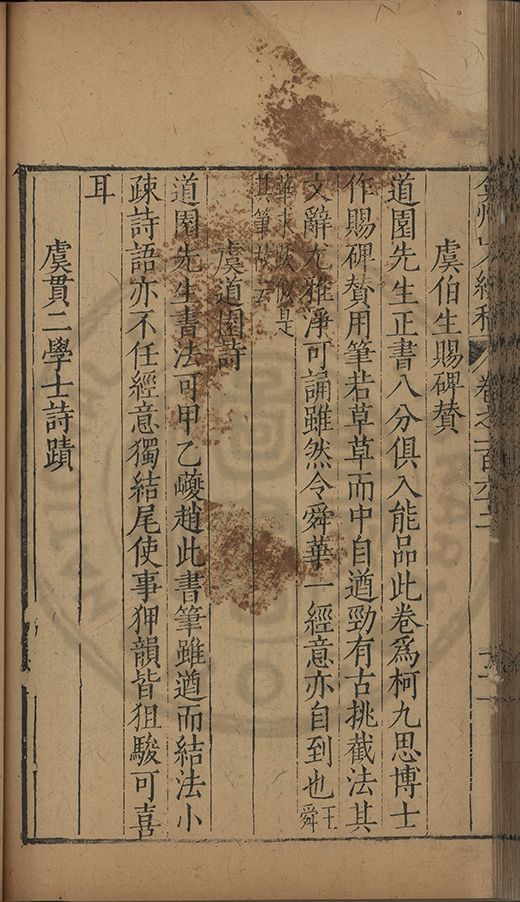 弇州山人續稿 卷之一百六十二
虞伯生賜碑贊
道園先生正書八分俱入能品此卷爲柯九思博士
作賜碑贊用筆若草草而中自遒勁有古挑截法其
文辭尤雅淨可誦雖然令舜華一經意亦自到也王舜
華求 似是
其筆故云
虞道園詩
道園先生書法可甲乙巙趙此書筆雖遒而結法小
疎詩語亦不任經意獨結尾使事狎韻皆狙駿可喜
耳
虞貫二學士詩蹟